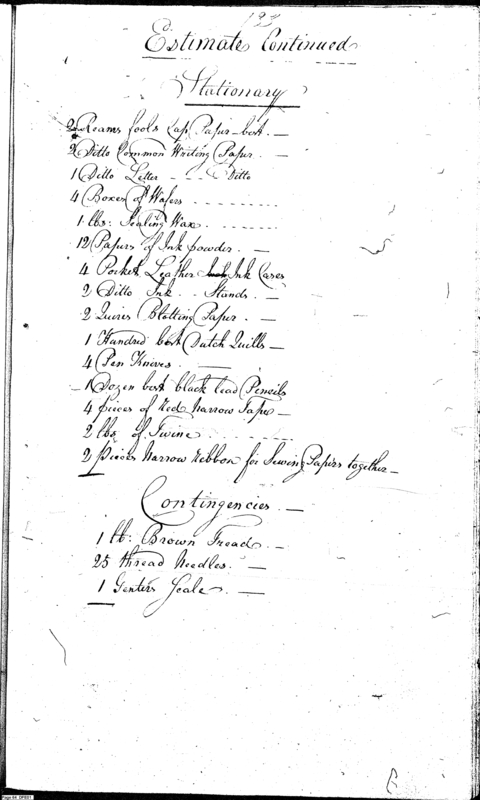 123
Estimate Continued
Stationary
2 Reams fools Cap Paper best. —
2 Ditto Common Writing Paper —
1 Ditto Letter - - - Ditto
4 Boxes of Wafers . . . . . . . .
1 lbs: Sealing Wax . . . . . . . .
12 Papers of Ink powder. —
4 Pocket Leather Ink Cases
2 Ditto Ink . . Stands . —
2 Quires Blotting Paper . —
1 Hundred best Dutch Quills —
4 Pen Knives . —
1 Dozen best black lead Pencils
4 pieces of Red Narrow Tape —
2 lbs of Twine . . . . . . . .
2 pieces Narrow Ribbon for Sewing Papers together —
Contingencies . —
1 lb: Brown Tread . —
25 thread Needles . —
1 Scale . —